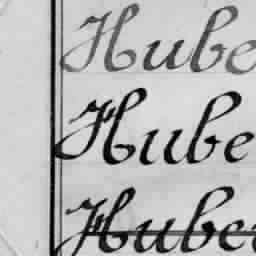 Hube
Hube
Huber